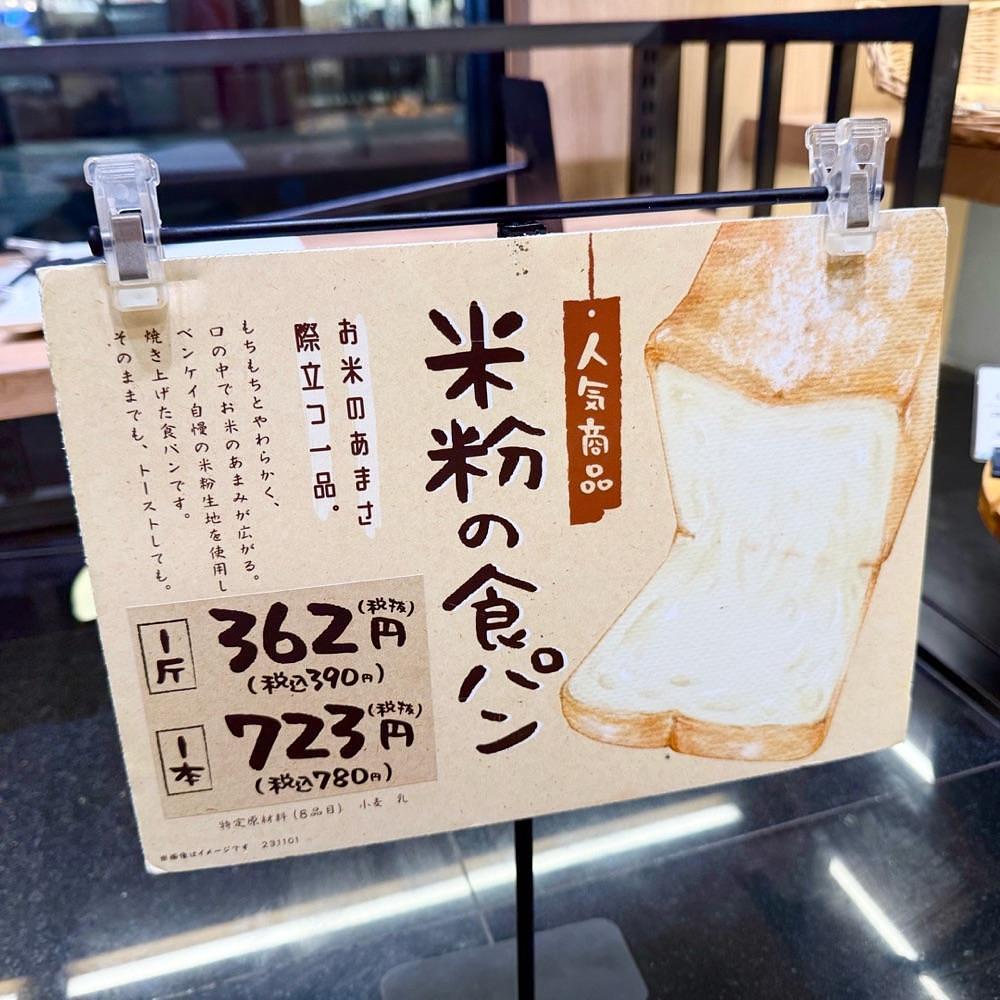 人気商品
米粉の食パン
お米のあまさ
際立つ一品。
もちもちとやわらかく、
口の中でお米のあまみが広がる。
ベンケイ自慢の米粉生地を使用し
焼き上げた食パンです。
そのままでも、トーストしても。
1斤
362円(税抜)
(税込390円)
1本
723円(税抜)
(税込780円)
特定原材料(8品目) 小麦 乳
※画像はイメージです 231101